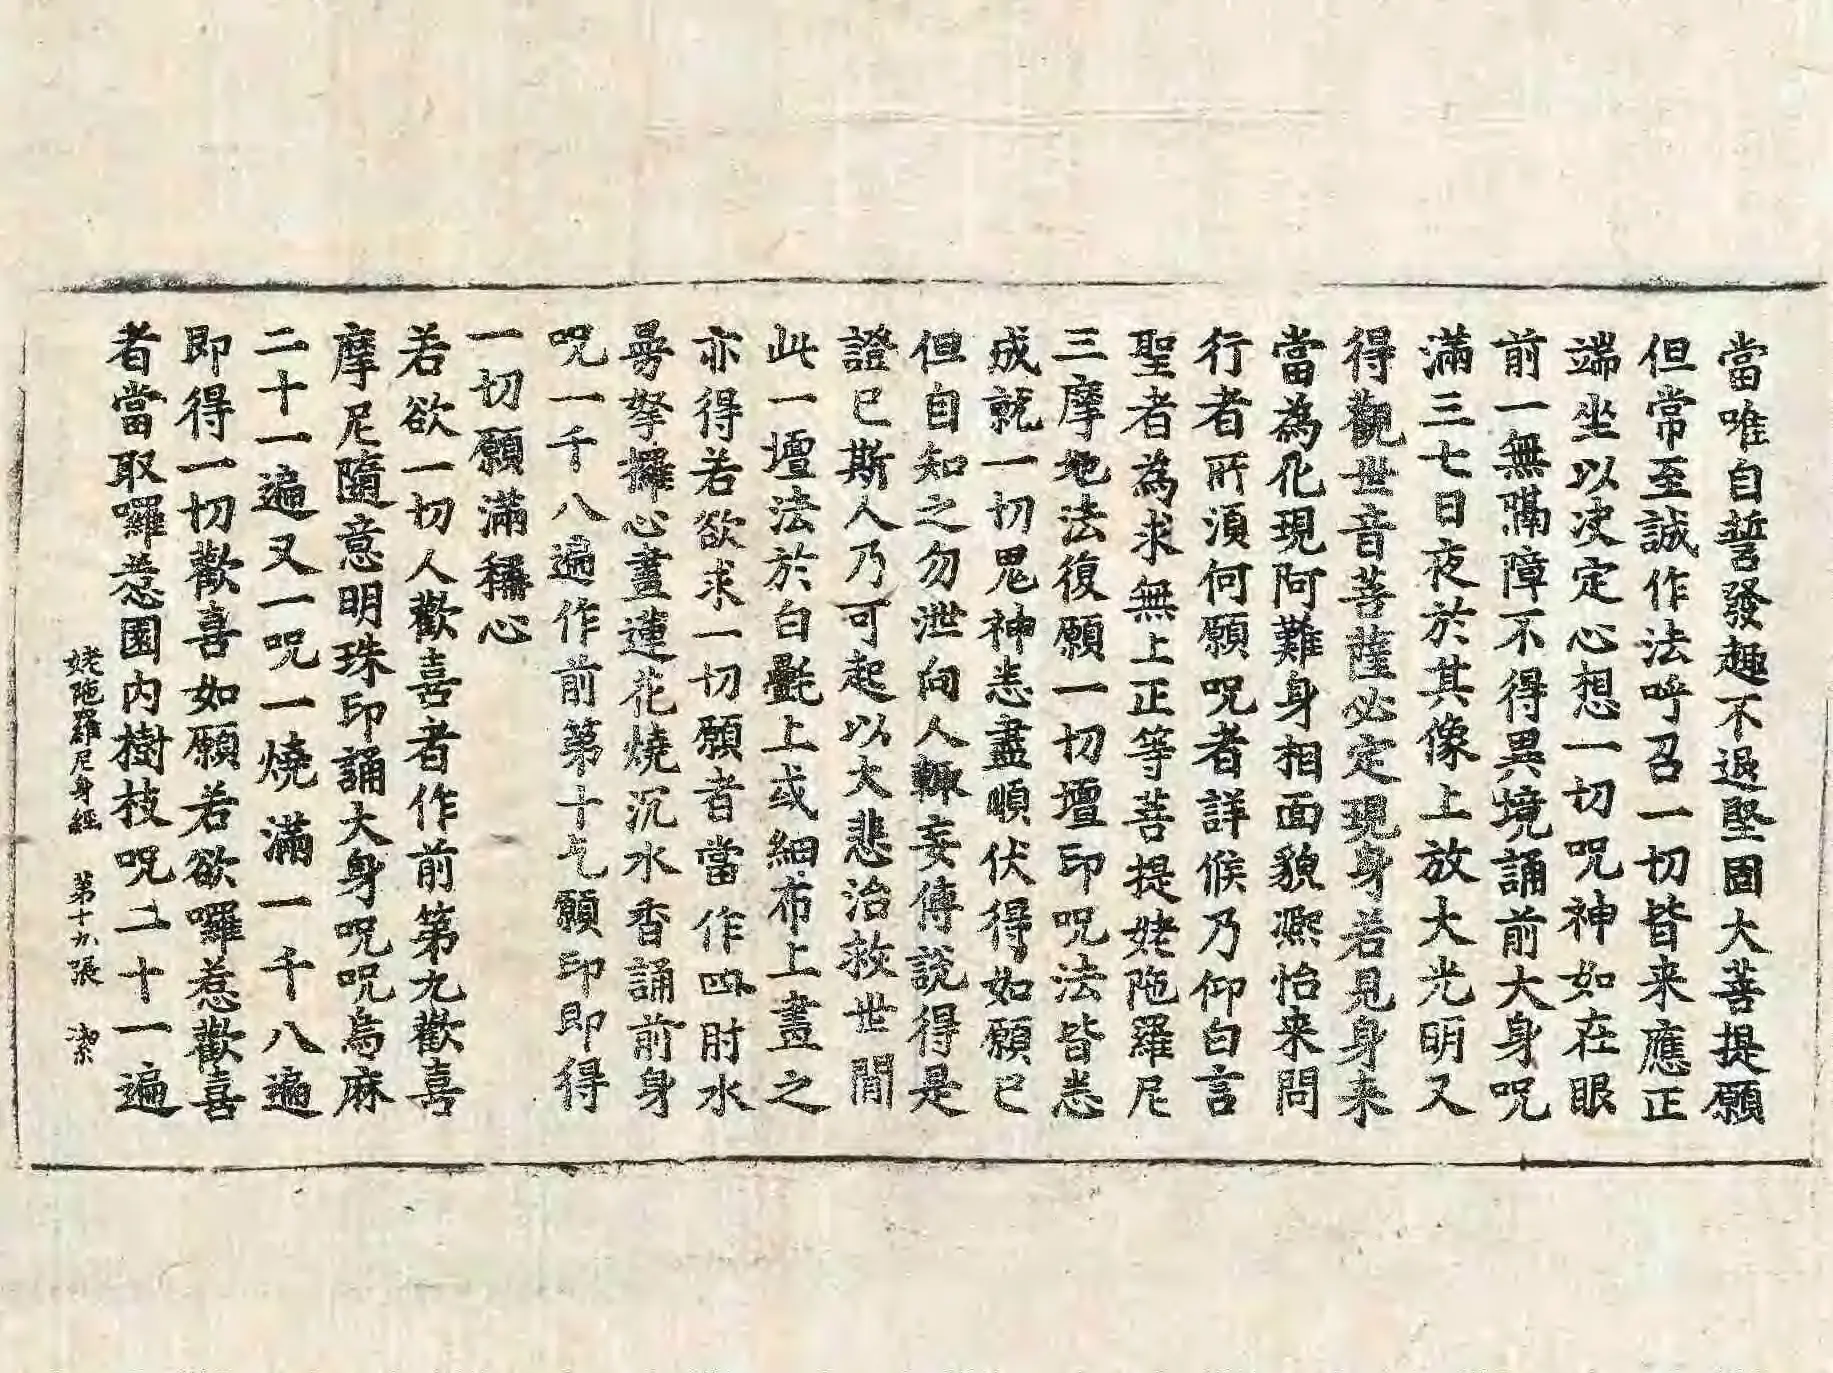 當唯自誓發趣不退堅固大菩提願
但常至誠作法呼召一切皆来應正
端坐以决定心想一切呪神如在眼
前一無隔障不得異境誦前大身呪
滿三七日夜於其像上放大光明又
得觀世音菩薩必定現身若見身来
當為化現阿難身相面貌熈怡来問
行者所湏何願呪者詳候乃仰白言
聖者為求無上正等菩提姥陁羅尼
三摩地法復願一切壇印呪法皆悉
成就一切鬼神悉盡順伏得如願已
但自知之勿泄向人輙妄傳說得是
證已斯人乃可起以大悲治救世閒
此一壇法於白㲲上或細布上畫之
亦得若欲求一切願者當作四肘水
曼拏攞心畫蓮花燒沉水香誦前身
呪一千八遍作前第十七願印即得
一切願滿稱心
若欲一切人歡喜者作前第九歡喜
摩尼隨意明珠印誦大身呪呪烏麻
二十一遍又一呪一燒滿一千八遍
即得一切歡喜如願若欲囉惹歡喜
者當取囉惹園内樹枝呪二十一遍
姥陁羅尼身經 第十九張 潔